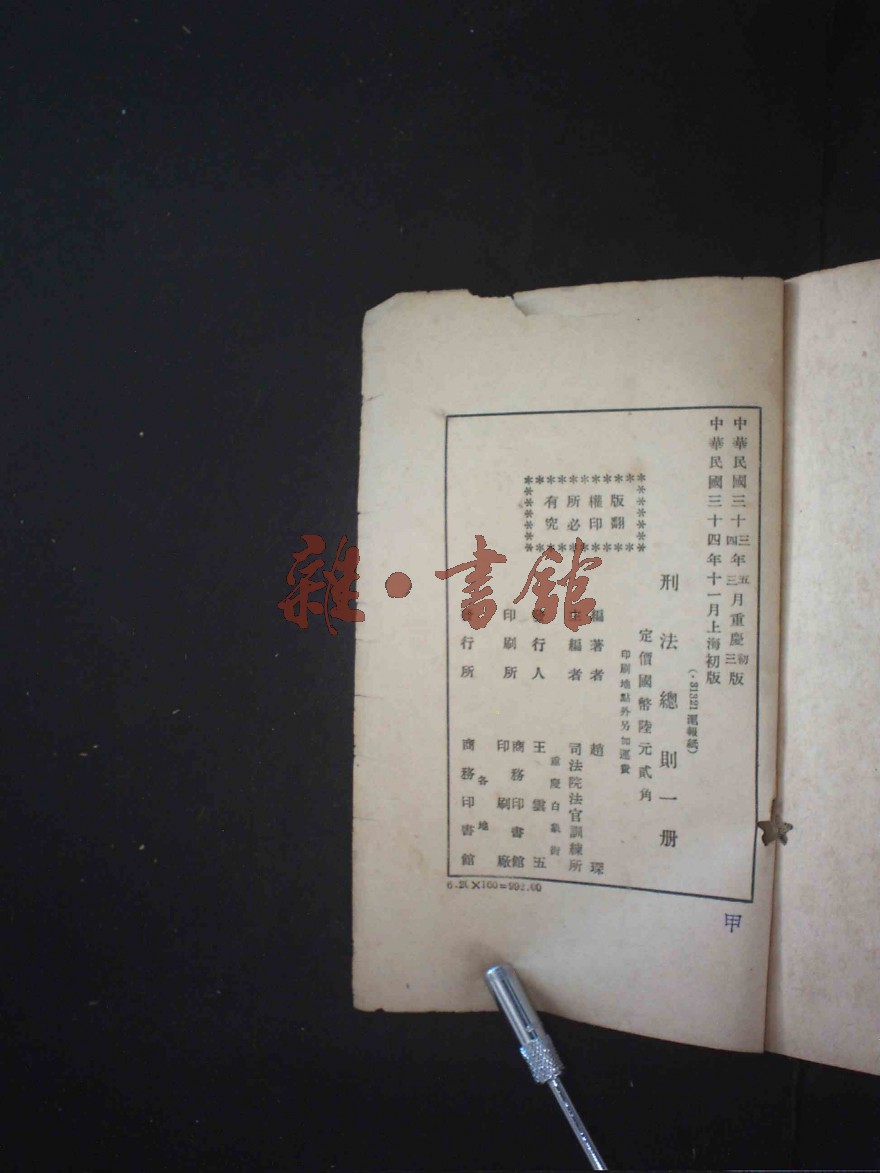 中華民國三十三年五月重慶初版
中華民國三十四年三月重慶三版
中華民國三十四年十一月上海初版
(·31321 滬報紙)
刑法總則一册
定價國幣陸元貳角
印刷地點外另加運費
版權所有
翻印必究
編著者 趙琛
主編者 司法院法官訓練所
發行人 王雲五
重慶白象街
印刷所 商務印書館
印刷廠
發行所 各地
商務印書館
甲
雜·書館